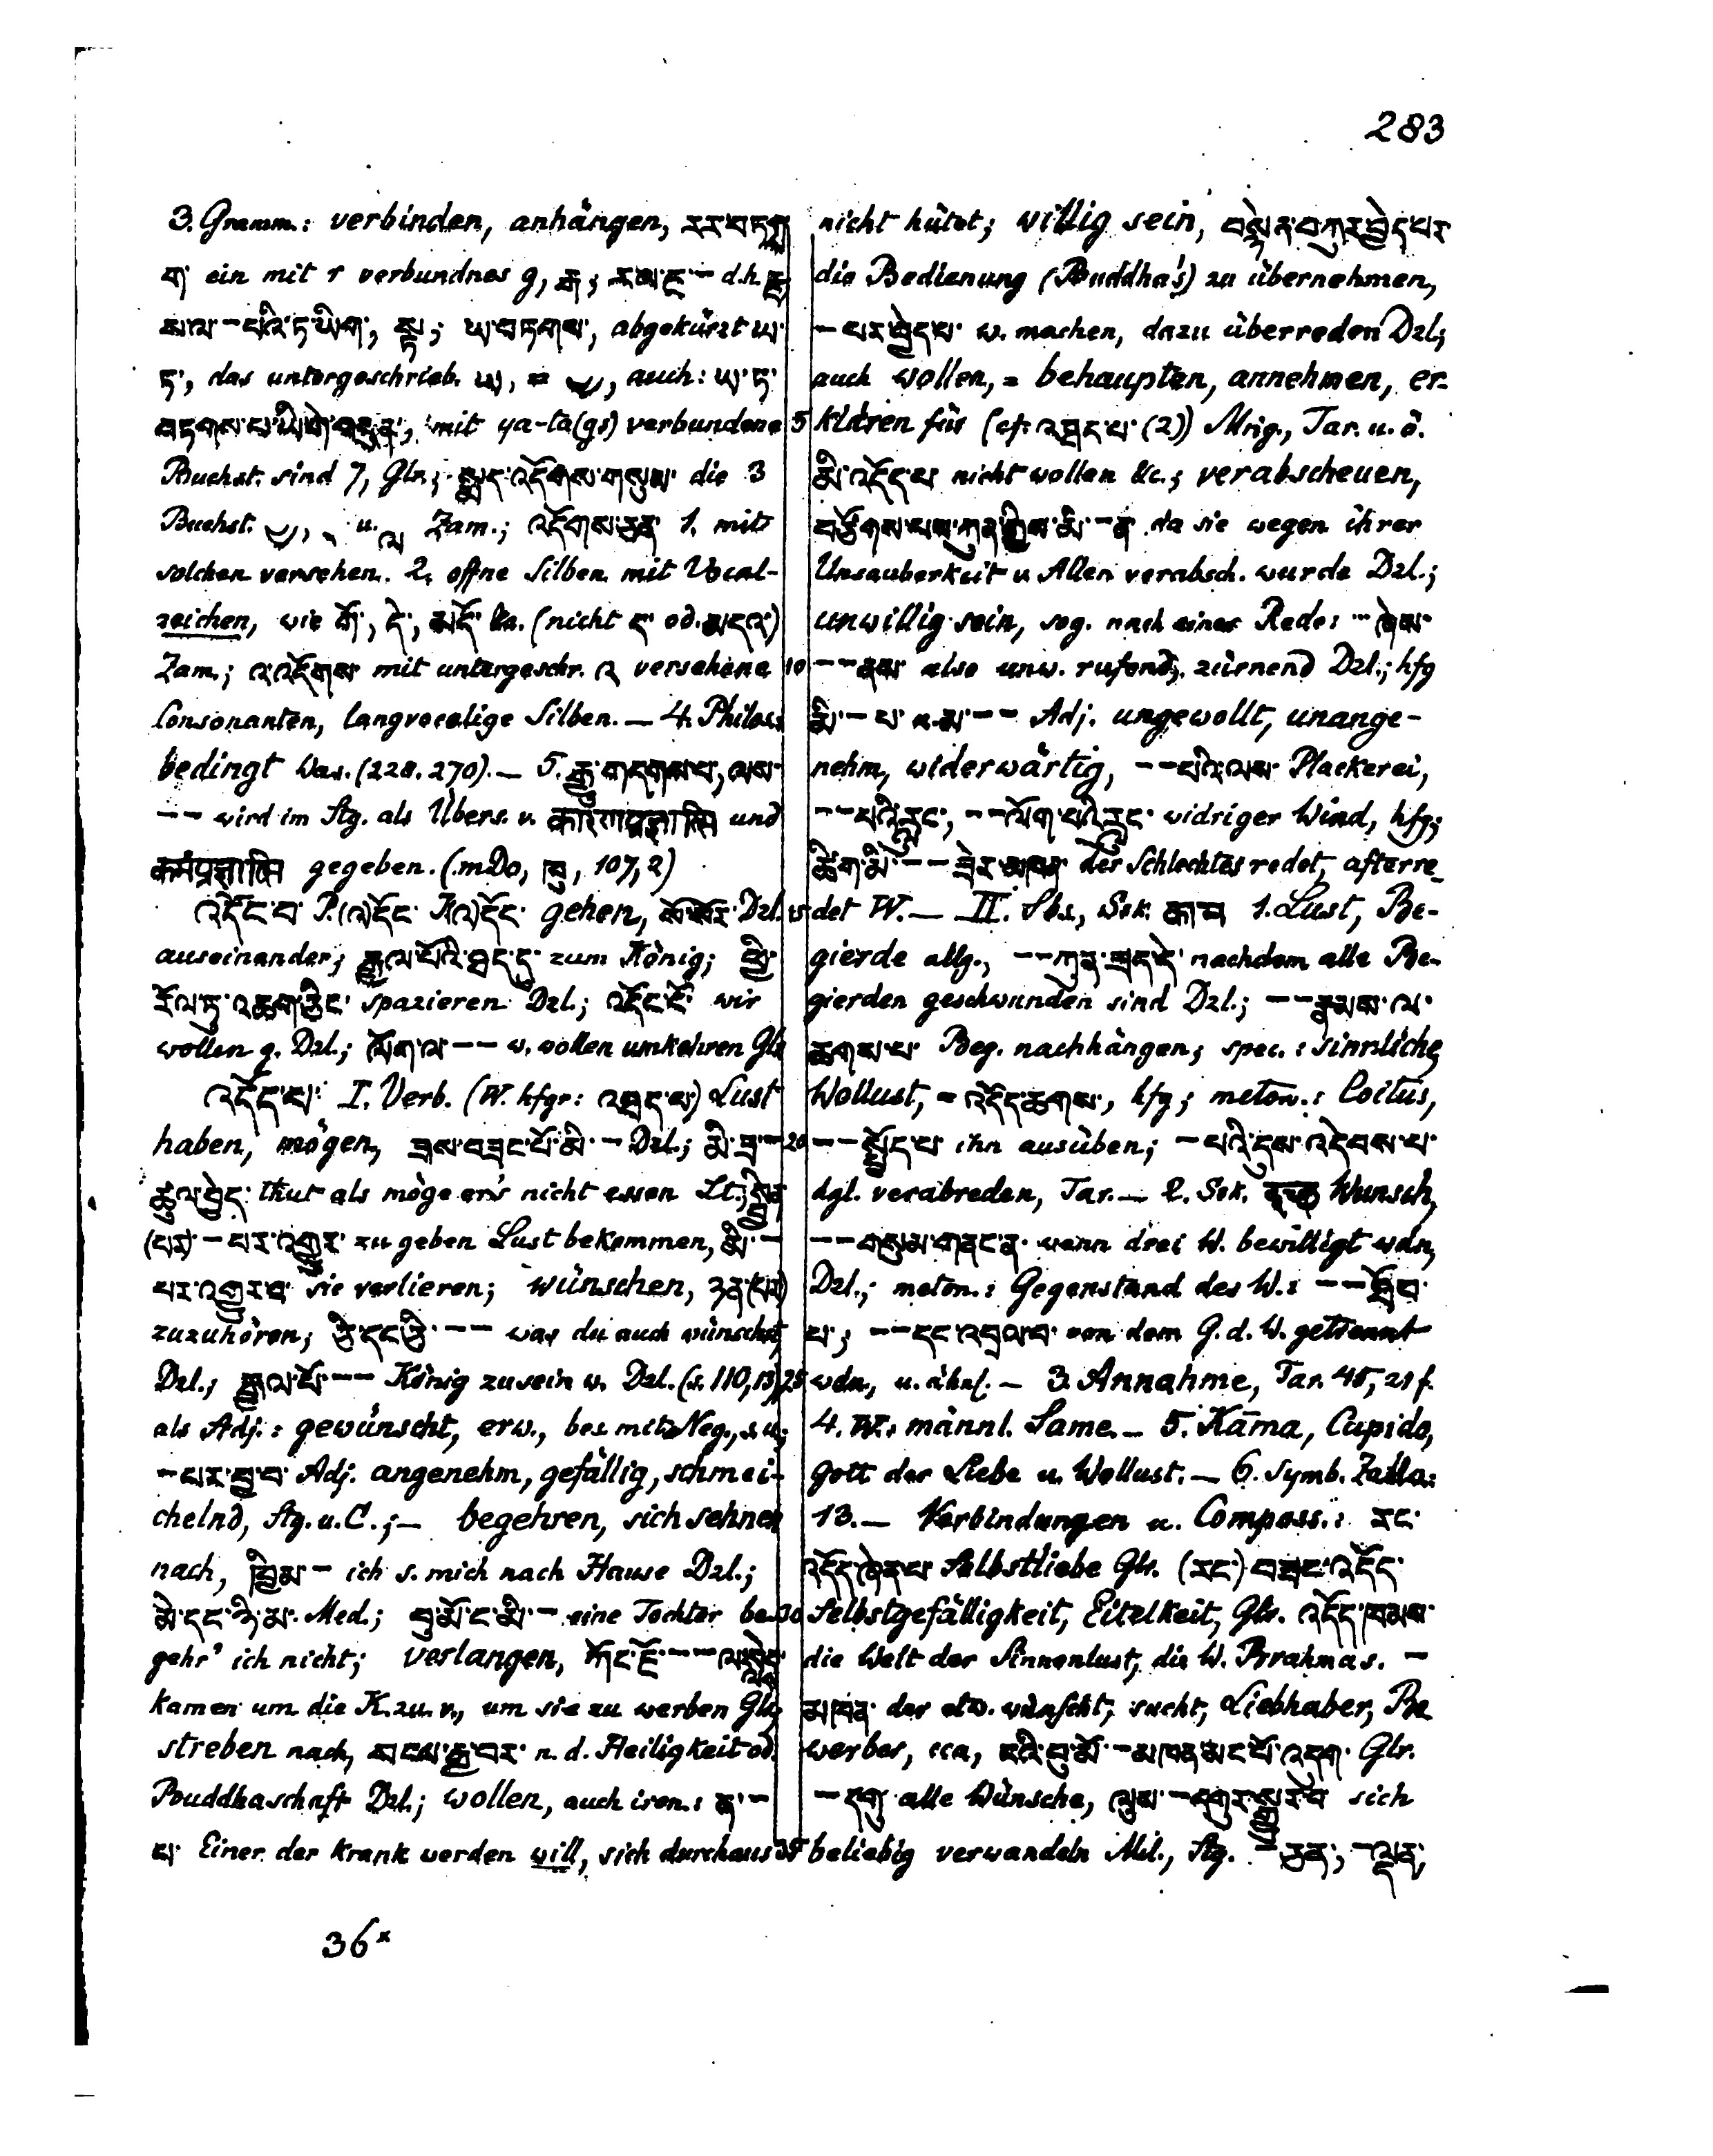 283
3. Gramm.: verbinden, anhängen, ར་ར་བཏགས
ག་ ein mit r verbundnes g, རྒ; ར་ལ་ཇ་ – d.h. རྗ,
ས་ལ་ – པའི་ཏ་ཡིག་, སྟ; ཡ་བཏགས་, abgekürzt ཡ་
ཏ་, das untergeschrieb. ཡ, = ྱ, auch: ཡ་ཏ་
mit ya-ta(gs) verbundene
Buchst. sind 7, Glr.; འདོགས་གསུམ་ die 3
Buchst. u. Zam.; འདོགས་ཅན་ 1. mit
solchen versehen. 2. offne Silben mit Vocal-
zeichen, wie དེ་, མདོ་ &c. (nicht ད་ od. མདའ་)
Zam.; འ་འདོགས་ mit untergeschr. འ versehene
Consonanten, langvocalige Silben. – 4. Philos.:
bedingt Was. (228. 270). – 5. རྒྱུ་གདགས་པ་, ལས་
-- wird im Stg. als Übers. v. und
gegeben. (mDo, 107,2)
འདོང་བ་ P. (འ)དོང་ K (འ)དོང་ gehen, སོ་སོར་ Dzl.
auseinander; རྒྱལ་པོའི་ཐད་དུ་ zum König; ཕྱི་
རོལ་ཏུ་འཆག་ཅིང་ spazieren Dzl.; འདོང་ངོ་ wir
wollen g. Dzl.; ལོག་ལ་ -- w. wollen umkehren Glr.
འདོད་པ་: I. Verb. (W. hfgr: འཐད་པ་) Lust
haben, mögen, ཟས་བཟང་པོ་མི་ – Dzl.; མི་ཟ་ –
ཚུལ་བྱེད་ thut als möge er's nicht essen Lt.; སྦྱིན
(པར་) – པར་འགྱུར་ zu geben Lust bekommen, མི་ –
པར་འགྱུར་བ་ sie verlieren; wünschen, ཉན་(པར་)
zuzuhören; ཅི་དང་ཅི་ -- was du auch wünschst
Dzl.; རྒྱལ་པོ་ -- König zu sein w. Dzl. (s. 110,13);
als Adj.: gewünscht, erw., bes. mit Neg., s.u.;
– པར་བྱ་བ་ Adj. angenehm, gefällig, schmei-
chelnd, Stg. u. C.; – begehren, sich sehnen
nach, ཁྱིམ་ – ich s. mich nach Hause Dzl.;
མེ་དང་ཉི་མ་ Med.; བུ་མོ་ང་མི་ – eine Tochter be-
gehr' ich nicht; verlangen, ཀོང་ཇོ་ --
kamen um die K. zu v., um sie zu werben Glr.;
streben nach, སངས་རྒྱ་བར་ n. d. Heiligkeit od.
Buddhaschaft Dzl.; wollen, auch iron.: ན་ –
པ་ Einer der krank werden will, sich durchaus
nicht hütet; willig sein, བསྙེན་བཀུར་བྱེད་པར་
die Bedienung (Buddha's) zu übernehmen,
– པར་བྱེད་པ་ w. machen, dazu überreden Dzl.;
auch wollen, = behaupten, annehmen, er-
5 klären für (cf. འཐད་པ་ (2)) Mrig., Tar. u. ö.
མི་འདོད་པ་ nicht wollen &c.; verabscheuen,
བཙོགས་པས་ཀུན་གྱིས་མི་ – ན་ da sie wegen ihrer
Unsauberkeit v. Allen verabsch. wurde Dzl.;
unwillig sein, sog. nach einer Rede: -- ཞེས་
10 -- ནས་ also unw. rufend, zürnend Dzl.; hfg
མི་ – པ་ u. མ་ -- Adj. ungewollt, unange-
nehm, widerwärtig, -- པའི་ལས་ Plackerei,
-- པའི་རླུང་, -- ལོག་པའི་རླུང་ widriger Wind, hfg;
ཚིག་མི་ -- ཟེར་མཁན་ der Schlechtes redet, afterre-
15 det W. – II. Sbs., Ssk. काम 1. Lust, Be-
gierde allg., -- ཀུན་ཟད་དེ་ nachdem alle Be-
gierden geschwunden sind Dzl.; -- རྣམས་ལ་
ཆགས་པ་ Beg. nachhängen; spec.: sinnliche
Wollust, = འདོད་ཆགས་, hfg; meton.: Coitus,
20 -- སྤྱོད་པ་ ihn ausüben; – པའི་དུས་འདེབས་པ་
dgl. verabreden, Tar. – 2. Ssk. Wunsch,
-- གསུམ་གནང་ན་ wenn drei W. bewilligt wdn,
Dzl.; meton.: Gegenstand des W.: -- ཐོབ་
པ་; -- དང་འབྲལ་བ་ von dem G. d. W. getrennt
25 wdn, u. ähnl. – 3. Annahme, Tar. 45, 21 f.
4. W.: männl. Same. – 5. Kāma, Cupido,
Gott der Liebe u. Wollust. – 6. symb. Zahl:
13. – Verbindungen u. Composs.: རང་
འདོད་ Selbstliebe Glr. (རང་) བཟང་འདོད་
30 Selbstgefälligkeit, Eitelkeit, Glr. འདོད་ཁམས་
die Welt der Sinnenlust, die W. Brahmas. –
མཁན་ der etw. wünscht, sucht, Liebhaber, Be
werber, cca, ངའི་བུ་མོ་ – མཁན་མང་པོ་འདུག་ Glr.
– དགུ་ alle Wünsche, ལུས་ – དགུར་སྒྱུར་བ་ sich
35 beliebig verwandeln Mil., Stg. – ཅན་, – ལྡན་,
36*